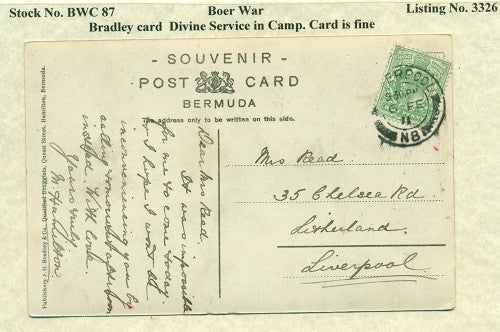 Stock No. BWC 87 Boer War Listing No. 3326
Bradley card Divine Service in Camp. Card is fine
- SOUVENIR -
POST CARD
BERMUDA
The address only to be written on this side.
Publishers, J.H. Bradley & Co. Qualified Druggists, Queen Street, Hamilton, Bermuda.
Dear Mrs Read,
It was impossible
for me to come today.
I hope I won't be
inconveniencing you by
calling tomorrow afternoon
instead. With love.
Yours truly
M
Mrs Read.
35 Chelsea Rd
Litherland.
Liverpool
ERPOOL
PM
FE
11
N8